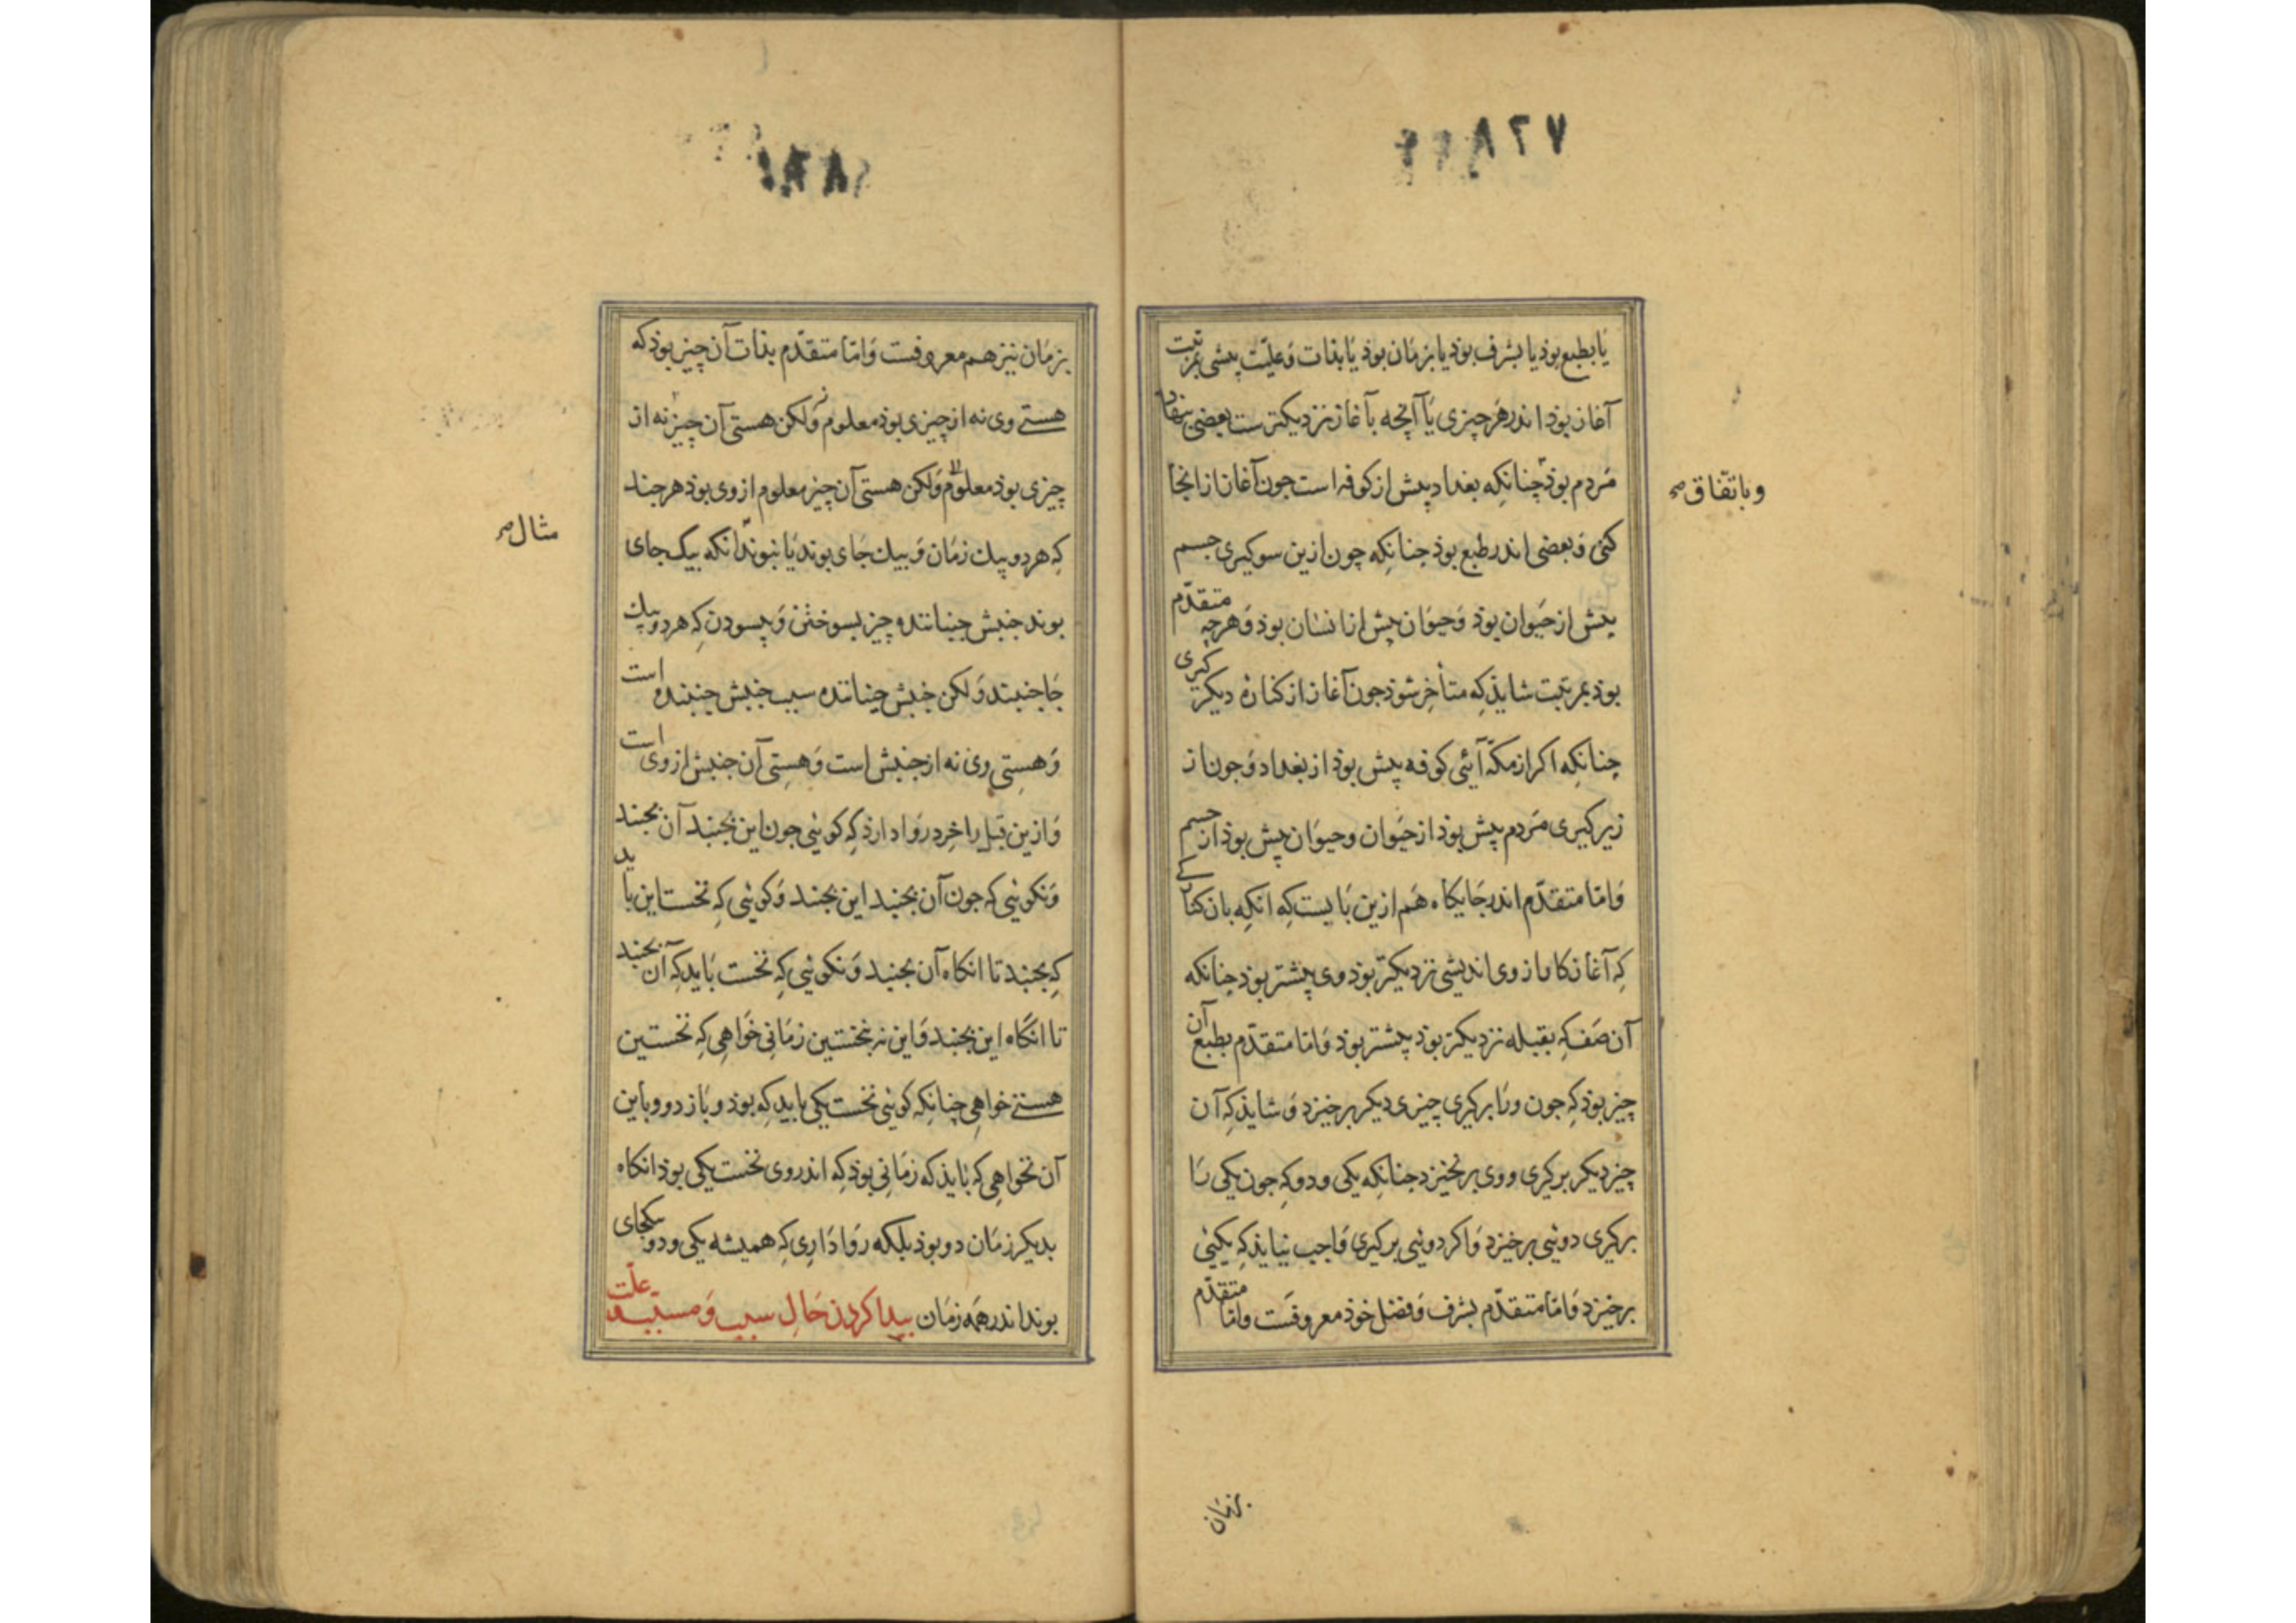 ۷۲۸
یا بطبع بوذ یا بشرف بوذ یا بزمان بوذ یا بذات و علیّت پیشی بمرتبت
آغاز بوذ اندر هر چیزی یا آنچه بآغاز نزدیکترست بعضی بنهاد
مردم بوذ چنانکه بغداد پیش از کوفه است جون آغاز از انجا
وباتفاق صح
کنی و بعضی اندر طبع بوذ جنانکه چون ازین سو کیری جسم
پیش از حیوان بوذ و حیوان پیش از انسان بوذ و هرچه متقدّم
بوذ بمرتبت شایذ که متأخر شوذ جون آغاز از کنارهٔ دیکر کیری
چنانکه اکر از مکّه آئی کوفه پیش بوذ از بغداد و جون از
زیر کیری مردم پیش بوذ از حیوان و حیوان پیش بوذ از جسم
و امّا متقدّم اندر جایکاه هم ازین بابست که انکه بان
که آغاز کاه از وی اندیشی نزدیکتر بوذ وی پیشتر بوذ چنانکه
آن صف که بقبله نزدیکتر بوذ پیشتر بوذ و امّا متقدّم بطبع آن
چیز بوذ که جون ورا برکیری چیزی دیکر برخیزد و شایذ که آن
چیز دیکر برکیری و وی برنخیزد جنانکه یکی و دو که جون یکی را
برکیری دوئی برخیزد و اکر دوئی برکیری واجب نیایذ که یکیئی
برخیزد و امّا متقدّم بشرف و فضل خوذ معروفست و امّا متقدّم
بزمان
بزمان نیز هم معروفست و امّا متقدّم بذات آن چیز بوذ که
هستی وی نه از چیزی بوذ معلوم ولکن هستی آن چیز نه از
چیزی بوذ معلوم ولکن هستی آن چیز معلوم از وی بوذ هرجند
که هر دو بیک زمان و بیک جای بوند یا نبوند انکه بیک جای
مثال صح
بوند جنبش جنباننده چیز بسوختن و پسودن که هر دو بیک
جا جنبند ولکن جنبش جنباننده سبب جنبش جنبنده است
و هستی وی نه از جنبش است و هستی آن جنبش از وی است
و ازین قبل را خرد روا دارذ که کوئی جون این بجنبد آن بجنبد
و نکوئی که جون آن بجنبد این بجنبد و کوئی که نخست این باید
که بجنبد تا انکاه آن بجنبد و نکوئی که نخست باید که آن بجنبد
تا انکاه این بجنبد و این نه بنخستین زمانی خواهی که نخستین
هستی خواهی چنانکه کوئی نخست یکی باید که بوذ و باز دو و باین
آن نخواهی که بایذ که زمانی بوذ که اندر وی نخست یکی بوذ انکاه
بدیکر زمان دو بوذ بلکه روا داری که همیشه یکی و دو بیکجای
بوند اندر همه زمان پیدا کردن حال سبب و مسبّب علّت